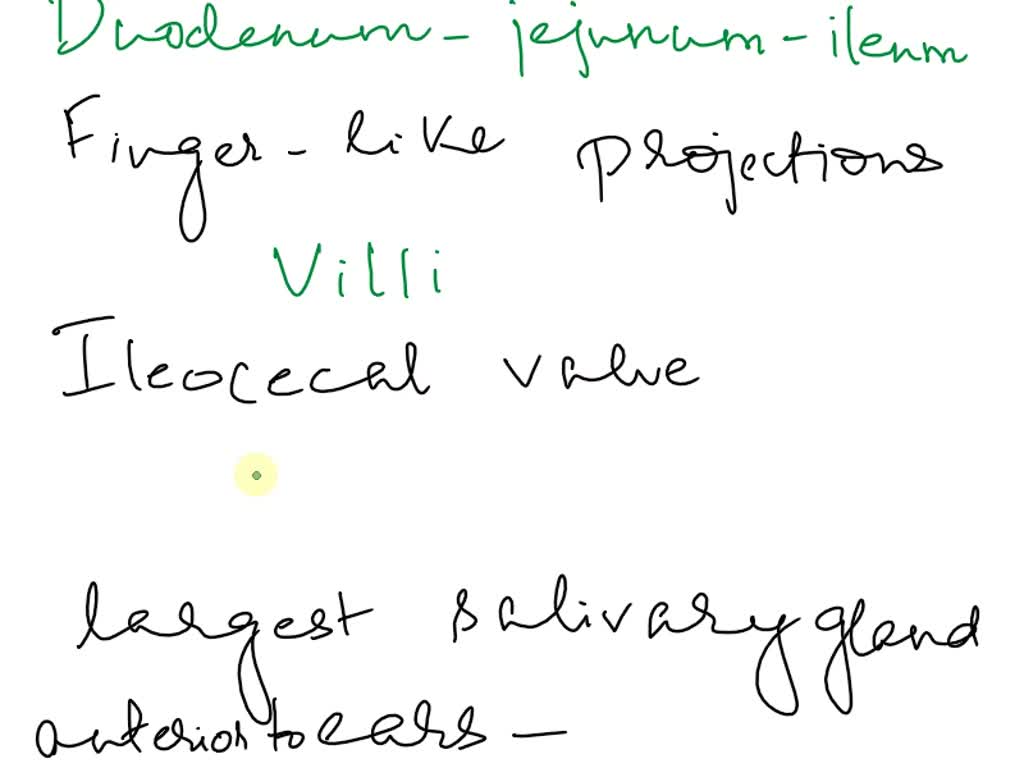 Duodenum - jejunum - ileum
Finger - like projections
Villi
Ileocecal valve
largest salivary gland
anterior to ears -